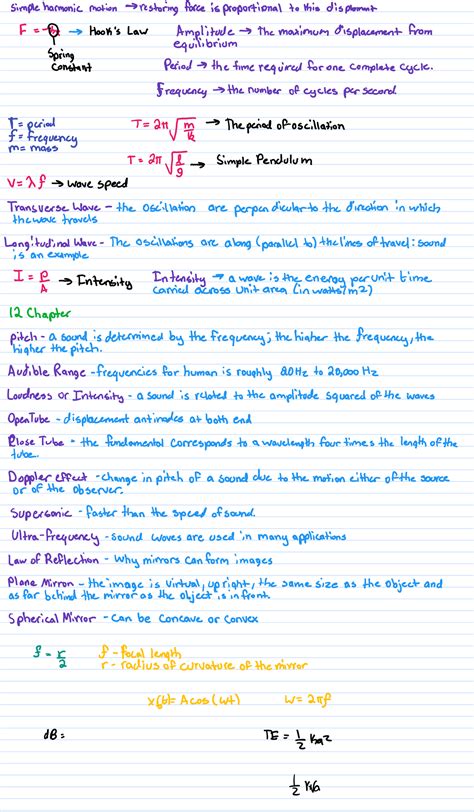 Simple harmonic motion → restoring force is proportional to this displacment
F = -kx → Hook's Law
Spring
Constant
Amplitude → The maximum displacement from
equilibrium
Period → the time required for one complete cycle.
frequency → the number of cycles per second
T = period
f = frequency
m = mass
T = 2π √m/k → The period of oscillation
T = 2π √l/g → Simple Pendulum
V = λf → wave speed
Transverse Wave - the oscillation are perpendicular to the direction in which
the wave travels
Longitudinal Wave - The oscillations are along (parallel to) the lines of travel: sound
is an example
I = P/A → Intensity
Intensity → a wave is the energy per unit time
carried across unit area (in watts/m2)
12 Chapter
pitch - a sound is determined by the frequency; the higher the frequency, the
higher the pitch.
Audible Range - frequencies for human is roughly 20Hz to 20,000 Hz
Loudness or Intensity - a sound is related to the amplitude squared of the waves
Open Tube - displacement antinodes at both end
Close Tube - the fundamental corresponds to a wavelength four times the length of the
tube.
Doppler effect - change in pitch of a sound due to the motion either of the source
or of the observer.
Supersonic - faster than the speed of sound.
Ultra-frequency - sound waves are used in many applications
Law of Reflection - why mirrors can form images
Plane Mirron - the image is virtual, upright, the same size as the object and
as far behind the mirror as the object is in front.
Spherical Mirror - Can be Concave or Convex
f = r/2
f - focal length
r - radius of curvature of the mirror
x(t) = A cos (wt) w = 2πf
dB =
TE = 1/2 ka2
1/2